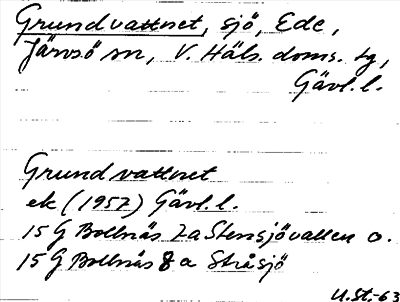 Grundvattnet, sjö, Ede,
Järvsö sn, V. Häls. doms. tg,
Gävl. l.
Grundvattnet
ek (1957) Gävl. l.
15 G Bollnäs 7a Stensjövallen o.
15 G Bollnäs 8a Stråsjö
U.St.-63